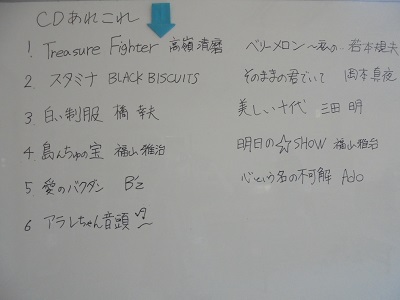 CDあれこれ
1 Treasure Fighter 高嶺清麿
2 スタミナ BLACK BISCUITS
3 白い制服 橋 幸夫
4 島んちゅの宝 福山雅治
5 愛のバクダン B'z
6 アラレちゃん音頭
ベリーメロン〜私の… 若本規夫
そのままの君でいて 岡本真夜
美しい十代 三田 明
明日の☆SHOW 福山雅治
心という名の不可解 Ado